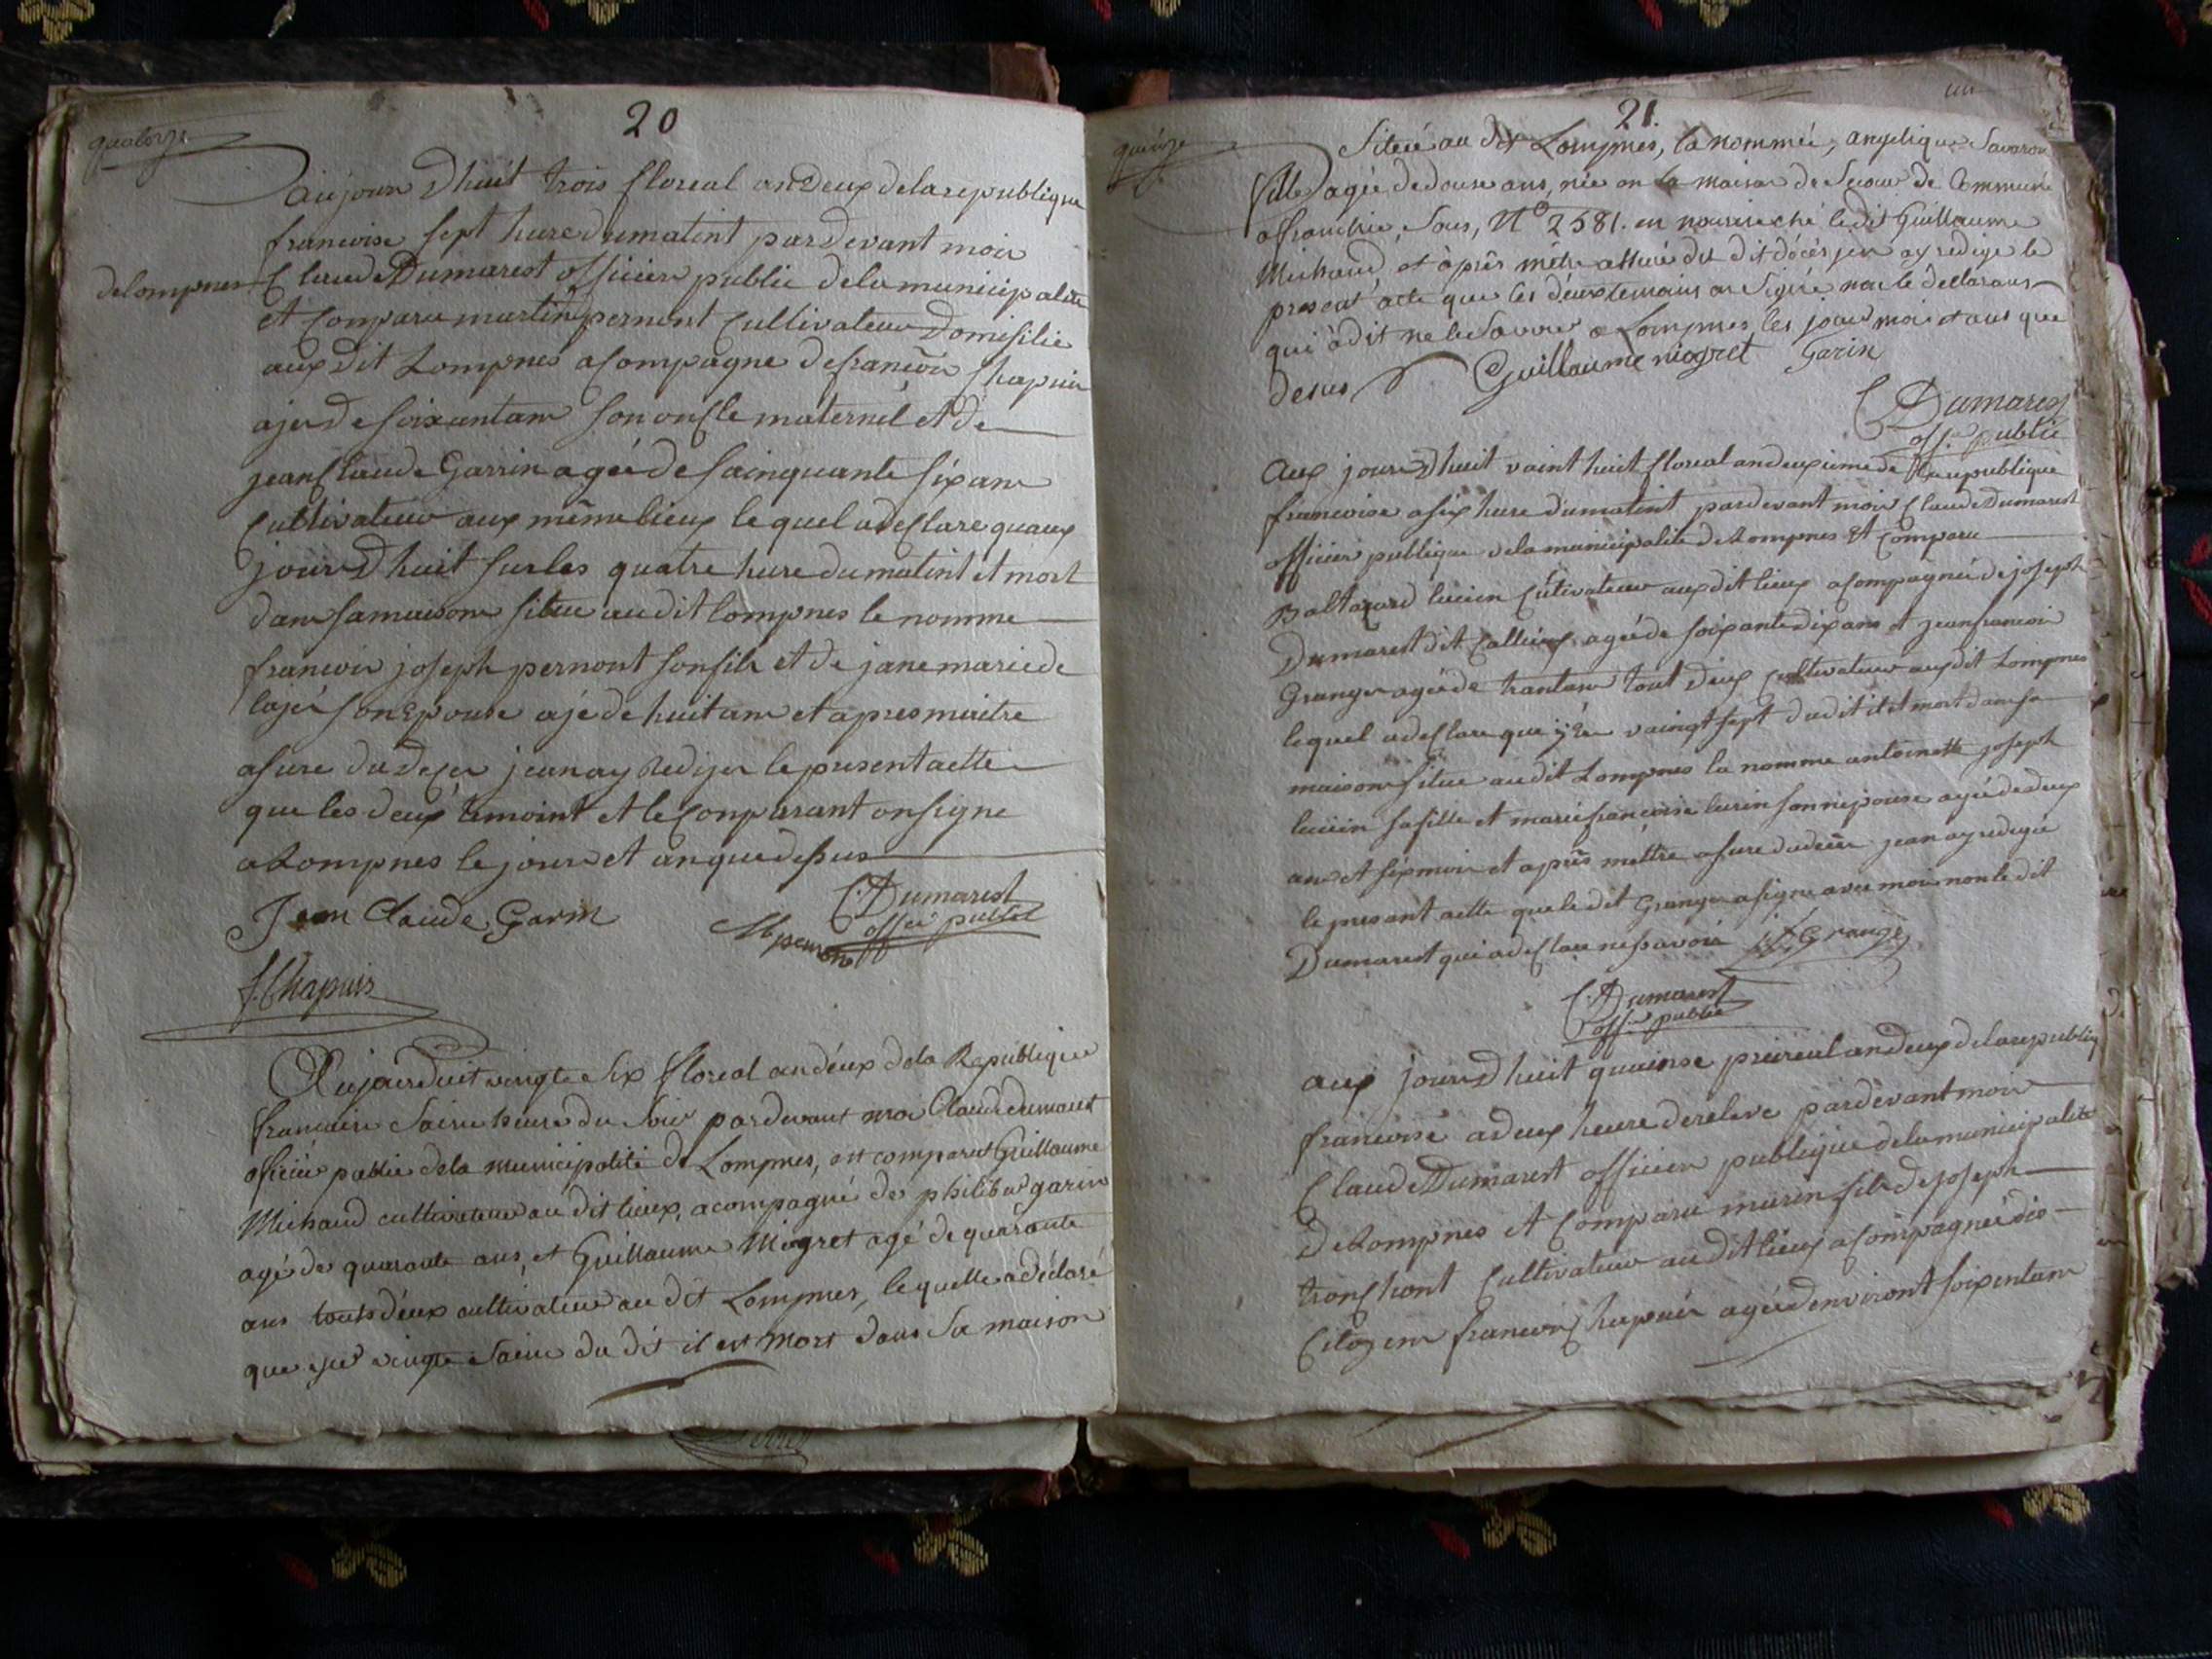 20
quatorze
aujour Dhuit trois floreal an deux de la republique
francoise sept hure dumatint pardevant moir
Claude Dumarest officier public de la municipalite
delompnes
et Comparu martin pernont Cultivateur Domisilie
aux dit Lompnes acompagne de francoir Chapuir
ajer de soixantam son oncle maternel et de
jean Claude Garrin ageé de sainquante six am
Cultivateur aux même lieux le quel a desClare quaux
jour Dhuit sur les quatre hure du matint et mort
dam sa maisom situe au dit lompnes le nomme
francoir joseph pernont son fils et de jane marie de
lajer son Epouse ajé de huit am et apres maitre
asure du Deser jean ay Redijer le present actte
que les deux temoint et le Comparant on signe
a Lompnes le jour et an que dessus
Jean Claude Garin
C. Dumarest
offier public
M pernont
f. Chapuis
Aujourduit vingte six floreal an deux de la Republique
francaise sainc heure du soir pardevant moi Claude dumarest
officier public de la municipalité de Lompnes, est comparut Guillaume
Michaud cultivateur au dit lieux, acompagné de philibert garin
agé de quarante ans, et Guillaume Niogret agé de quarante
ans touts deux cultivateur au dit Lompnes, lequelle a déclaré
que yer vingte sainc du dit il est mort dans sa maison
21.
quinze
Situé au dit Lompnes, la nommée, angelique Savaron
fille agée de douse ans, née en la maison de Secour de Commune
afranchie, sous, N° 2581. en nourise ché le dit Guillaume
Michaud, et après mêtre assuré du dit décés jen ay redige le
present acte que les deux temoins on Signé non le declarans
qui à dit ne le Savoir a Lompnes les jour moi et ans que
desus
Guillaume niogret Garin
C Dumarest
off. public
Aux jour Dhuit vaint huit floreal an deuxieme de la republique
francoise a six hure dumatint pardevant moir Claude Dumarest
officier publique de la municipalite de Lompnes Et Comparu
Baltazard luiein Cultivateur aux dit lieux acompagneé de joseph
Dumarest dit Callieux ageé de soixante dix am et jean francoir
Granger ageé de trantam tout deux Cultivateur aux dit Lompnes
le quel a desClare que yer vaingt sept du dit il et mort dam sa
maisom situe au dit Lompnes la nomme antoinette joseph
luiein sa fille et marie francoise lurin sonnepouse ageé de deux
am et six moir et aprés mettre asure du deser jean ay redegeé
le presant actte que le dit Granger a signe avec moi non le dit
Dumarest qui a desClare ne savoir j f Granger
C. Dumarest
off. public
aux jour Dhuit quainse preireal an deux de la republiq
francoise a deux heure de releve pardevant moir
Claude Dumarest officier publique de la municipalite
de Lompnes et Comparu murin fils de joseph
tronChont Cultivateur au dit lieux acompagneé dio
Citoyem francoir Chapuir ageé d'environt soixentam